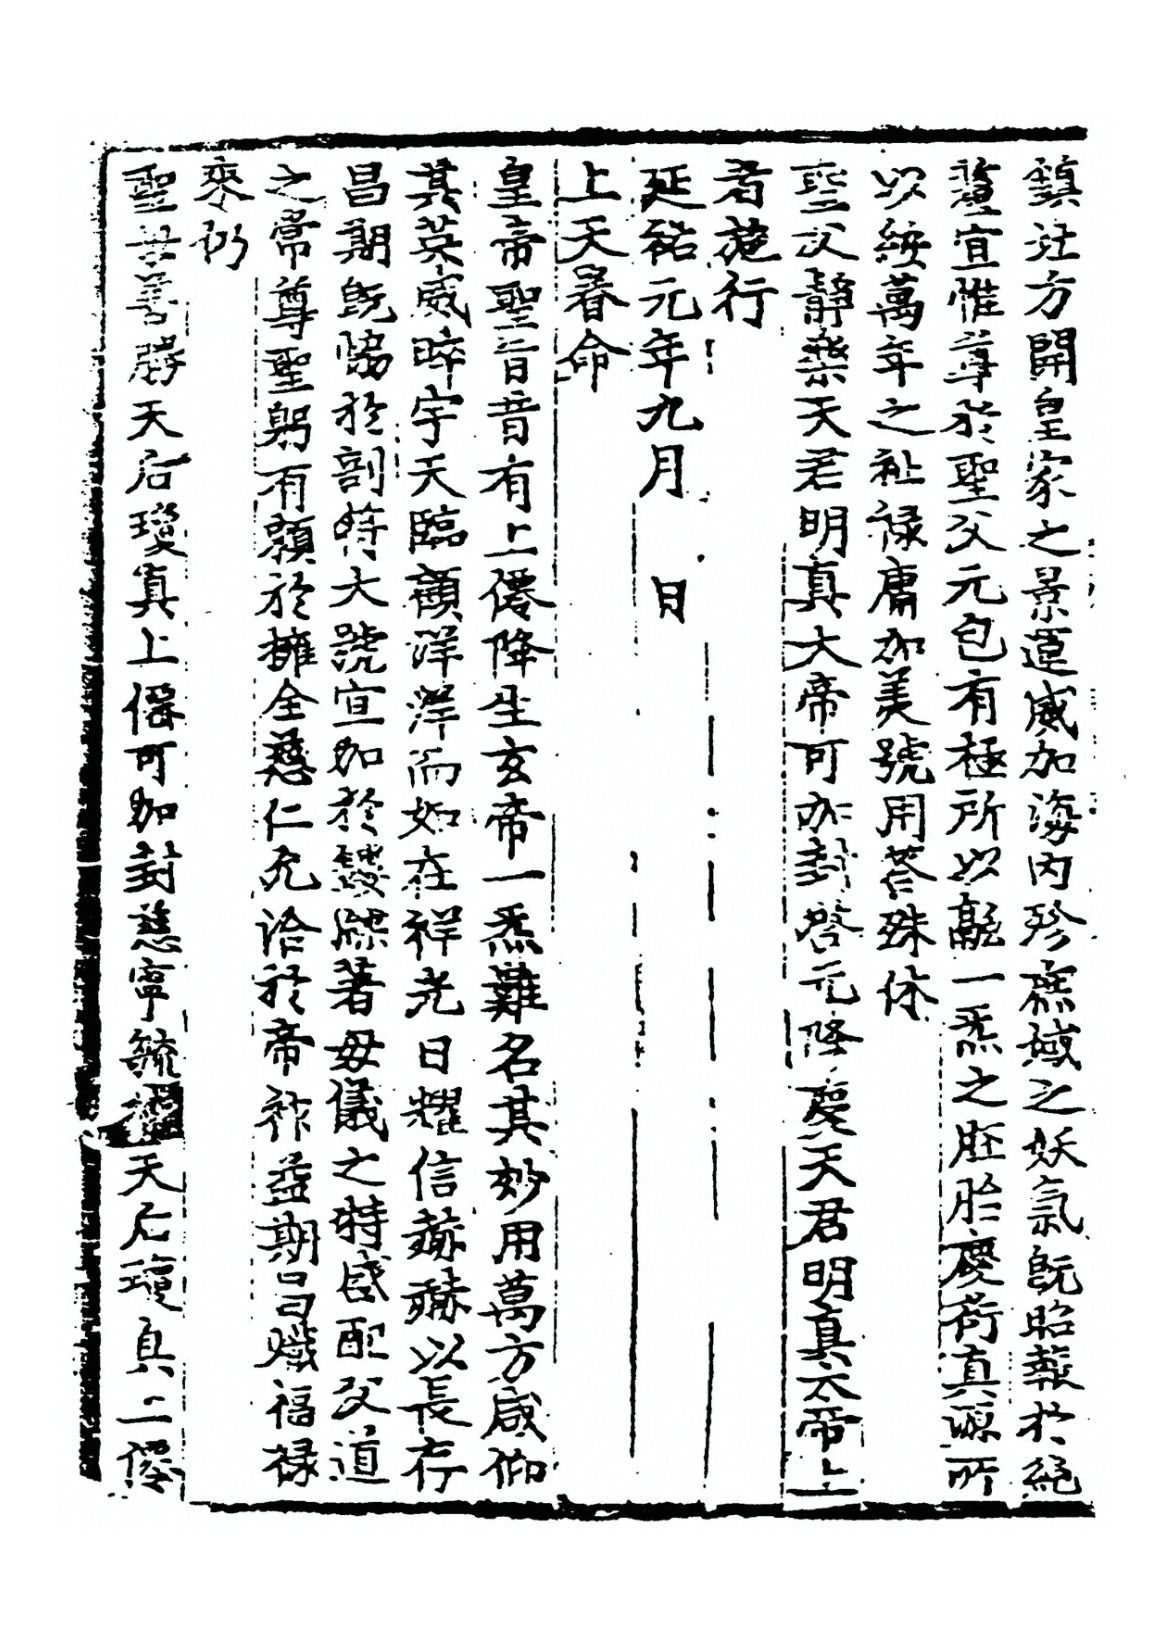 鎮北方開皇家之景運威加海內殄　域之妖氣旣昭報於絕
　宜惟尊於聖父元包有極所以　一炁之胚胎慶衍真源所
以綏萬年之祉祿庸加美號用荅殊休
聖父靜樂天君明真大帝可加封啓元隆慶天君明真大帝上
者施行
延祐元年九月　日
上天眷命
皇帝聖旨昔有上僊降生玄帝一炁難名其妙用萬方咸仰
其英威晬宇天臨顏洋洋而如在祥光日耀信赫赫以長存
昌期旣協於剖符大號宣加於　　著母儀之特盛配父道
之常尊聖躬有賴於擁全慈仁允洽於帝祚益期昌熾福祿
來仍
聖母善勝天后瓊真上僊可加封慈寧毓　天后瓊真上僊